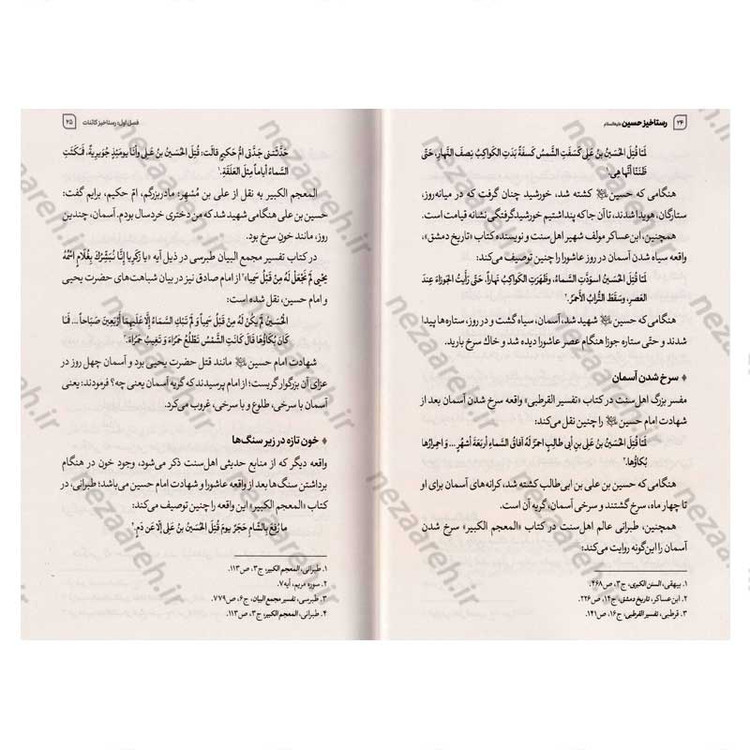 ۲۴ رستاخیز حسین علیه‌السلام
لَمّا قُتِلَ الحُسَینُ بنُ عَلی کَسَفَتِ الشَّمسُ کَسفَةً بَدَتِ الکَواکِبُ نِصفَ النَّهارِ، حَتّی
ظَنَنّا أنَّها هِی.۱
هنگامی که حسین ﷺ کشته شد، خورشید چنان گرفت که در میانه‌روز،
ستارگان، هویدا شدند، تا آن جا که پنداشتیم خورشیدگرفتگی نشانه قیامت است.
همچنین، ابن‌عساکر مولف شهیر اهل‌سنت و نویسنده کتاب «تاریخ دمشق»،
واقعه سیاه شدن آسمان در روز عاشورا را چنین توصیف می‌کند:
لَمّا قُتِلَ الحُسَینُ اسوَدَّتِ السَّماءُ، وظَهَرَتِ الکَواکِبُ نَهاراً، حَتّی رَأَیتُ الجَوزاءَ عِندَ
العَصرِ، وسَقَطَ التُّرابُ الأَحمَرُ.۲
هنگامی که حسین ﷺ شهید شد، آسمان، سیاه گشت و در روز، ستاره‌ها پیدا
شدند و حتّی ستاره جوزا هنگام عصر عاشورا دیده شد و خاک سرخ بارید.
سرخ شدن آسمان
مفسر بزرگ اهل‌سنت در کتاب «تفسیر القرطبی» واقعه سرخ شدن آسمان بعد از
شهادت امام حسین ﷺ را چنین نقل می‌کند:
لَمّا قُتِلَ الحُسَینُ بنُ عَلِی بنِ أبی طالِبٍ احمَرَّ لَهُ آفاقُ السَّماءِ أربَعَةَ أشهُرٍ... وَ احمِرارُها
بُکاؤُها.۳
هنگامی که حسین بن علی بن ابی‌طالب کشته شد، کرانه‌های آسمان برای او
تا چهار ماه، سرخ گشتند و سرخی آسمان، گریه آن است.
همچنین، طبرانی عالم اهل‌سنت در کتاب «المعجم الکبیر» سرخ شدن
آسمان را این‌گونه روایت می‌کند:
۱. بیهقی، السنن الکبری، ج۳، ص۴۶۸.
۲. ابن‌عساکر، تاریخ دمشق، ج۱۴، ص۲۲۶.
۳. قرطبی، تفسیر القرطبی، ج۱۶، ص۱۴۱.
فصل اول: رستاخیز کائنات ۲۵
حَدَّثَتنی جَدَّتی امُّ حَکیمٍ قالَت: قُتِلَ الحُسَینُ بنُ عَلِی وأنَا یومَئِذٍ جُوَیرِیةٌ، فَمَکَثَتِ
السَّماءُ أیاماً مِثلَ العَلَقَةِ.۱
المعجم الکبیر به نقل از علی بن مُسْهِر: مادربزرگم، امّ حکیم، برایم گفت:
حسین بن علی هنگامی شهید شد که من دختری خردسال بودم. آسمان، چندین
روز، مانند خونِ سرخ بود.
در کتاب تفسیر مجمع البیان طبرسی در ذیل آیه «یا زَکَرِیا إِنَّا نُبَشِّرُكَ بِغُلَامٍ اسْمُهُ
یحْیی لَمْ نَجْعَل لَّهُ مِن قَبْلُ سَمِیا»۲ از امام صادق نیز در بیان شباهت‌های حضرت یحیی
و امام حسین، نقل شده است:
الحُسَینُ لَم یکُن لَهُ مِن قَبلُ سَمِیاً وَ لَم تَبكِ السَّماءُ إلّا عَلَیهِما أربَعینَ صَباحاً... فَما
کانَ بُکاؤُها قالَ کانَتِ الشَّمسُ تَطلُعُ حَمراءَ وَ تَغیبُ حَمراءَ.۳
شهادت امام حسین ﷺ مانند قتل حضرت یحیی بود و آسمان چهل روز در
عزای آن بزرگوار گریست؛ از امام پرسیدند که گریه آسمان یعنی چه؟ فرمودند: یعنی
آسمان با سرخی، طلوع و با سرخی، غروب می‌کرد.
خون تازه در زیر سنگ‌ها
واقعه دیگر که از منابع حدیثی اهل‌سنت ذکر می‌شود، وجود خون در هنگام
برداشتن سنگ‌ها بعد از واقعه عاشورا و شهادت امام حسین می‌باشد؛ طبرانی، در
کتاب «المعجم الکبیر» این واقعه را چنین توصیف می‌کند:
ما رُفِعَ بِالشّامِ حَجَرٌ یومَ قُتِلَ الحُسَینُ بنُ عَلِی إلّا عَن دَمٍ.۴
۱. طبرانی، المعجم الکبیر، ج۳، ص۱۱۳.
۲. سوره مریم، آیه۷.
۳. طبرسی، تفسیر مجمع البیان، ج۶، ص۷۷۹.
۴. طبرانی، المعجم الکبیر، ج۳، ص۱۱۳.
nezaareh.ir